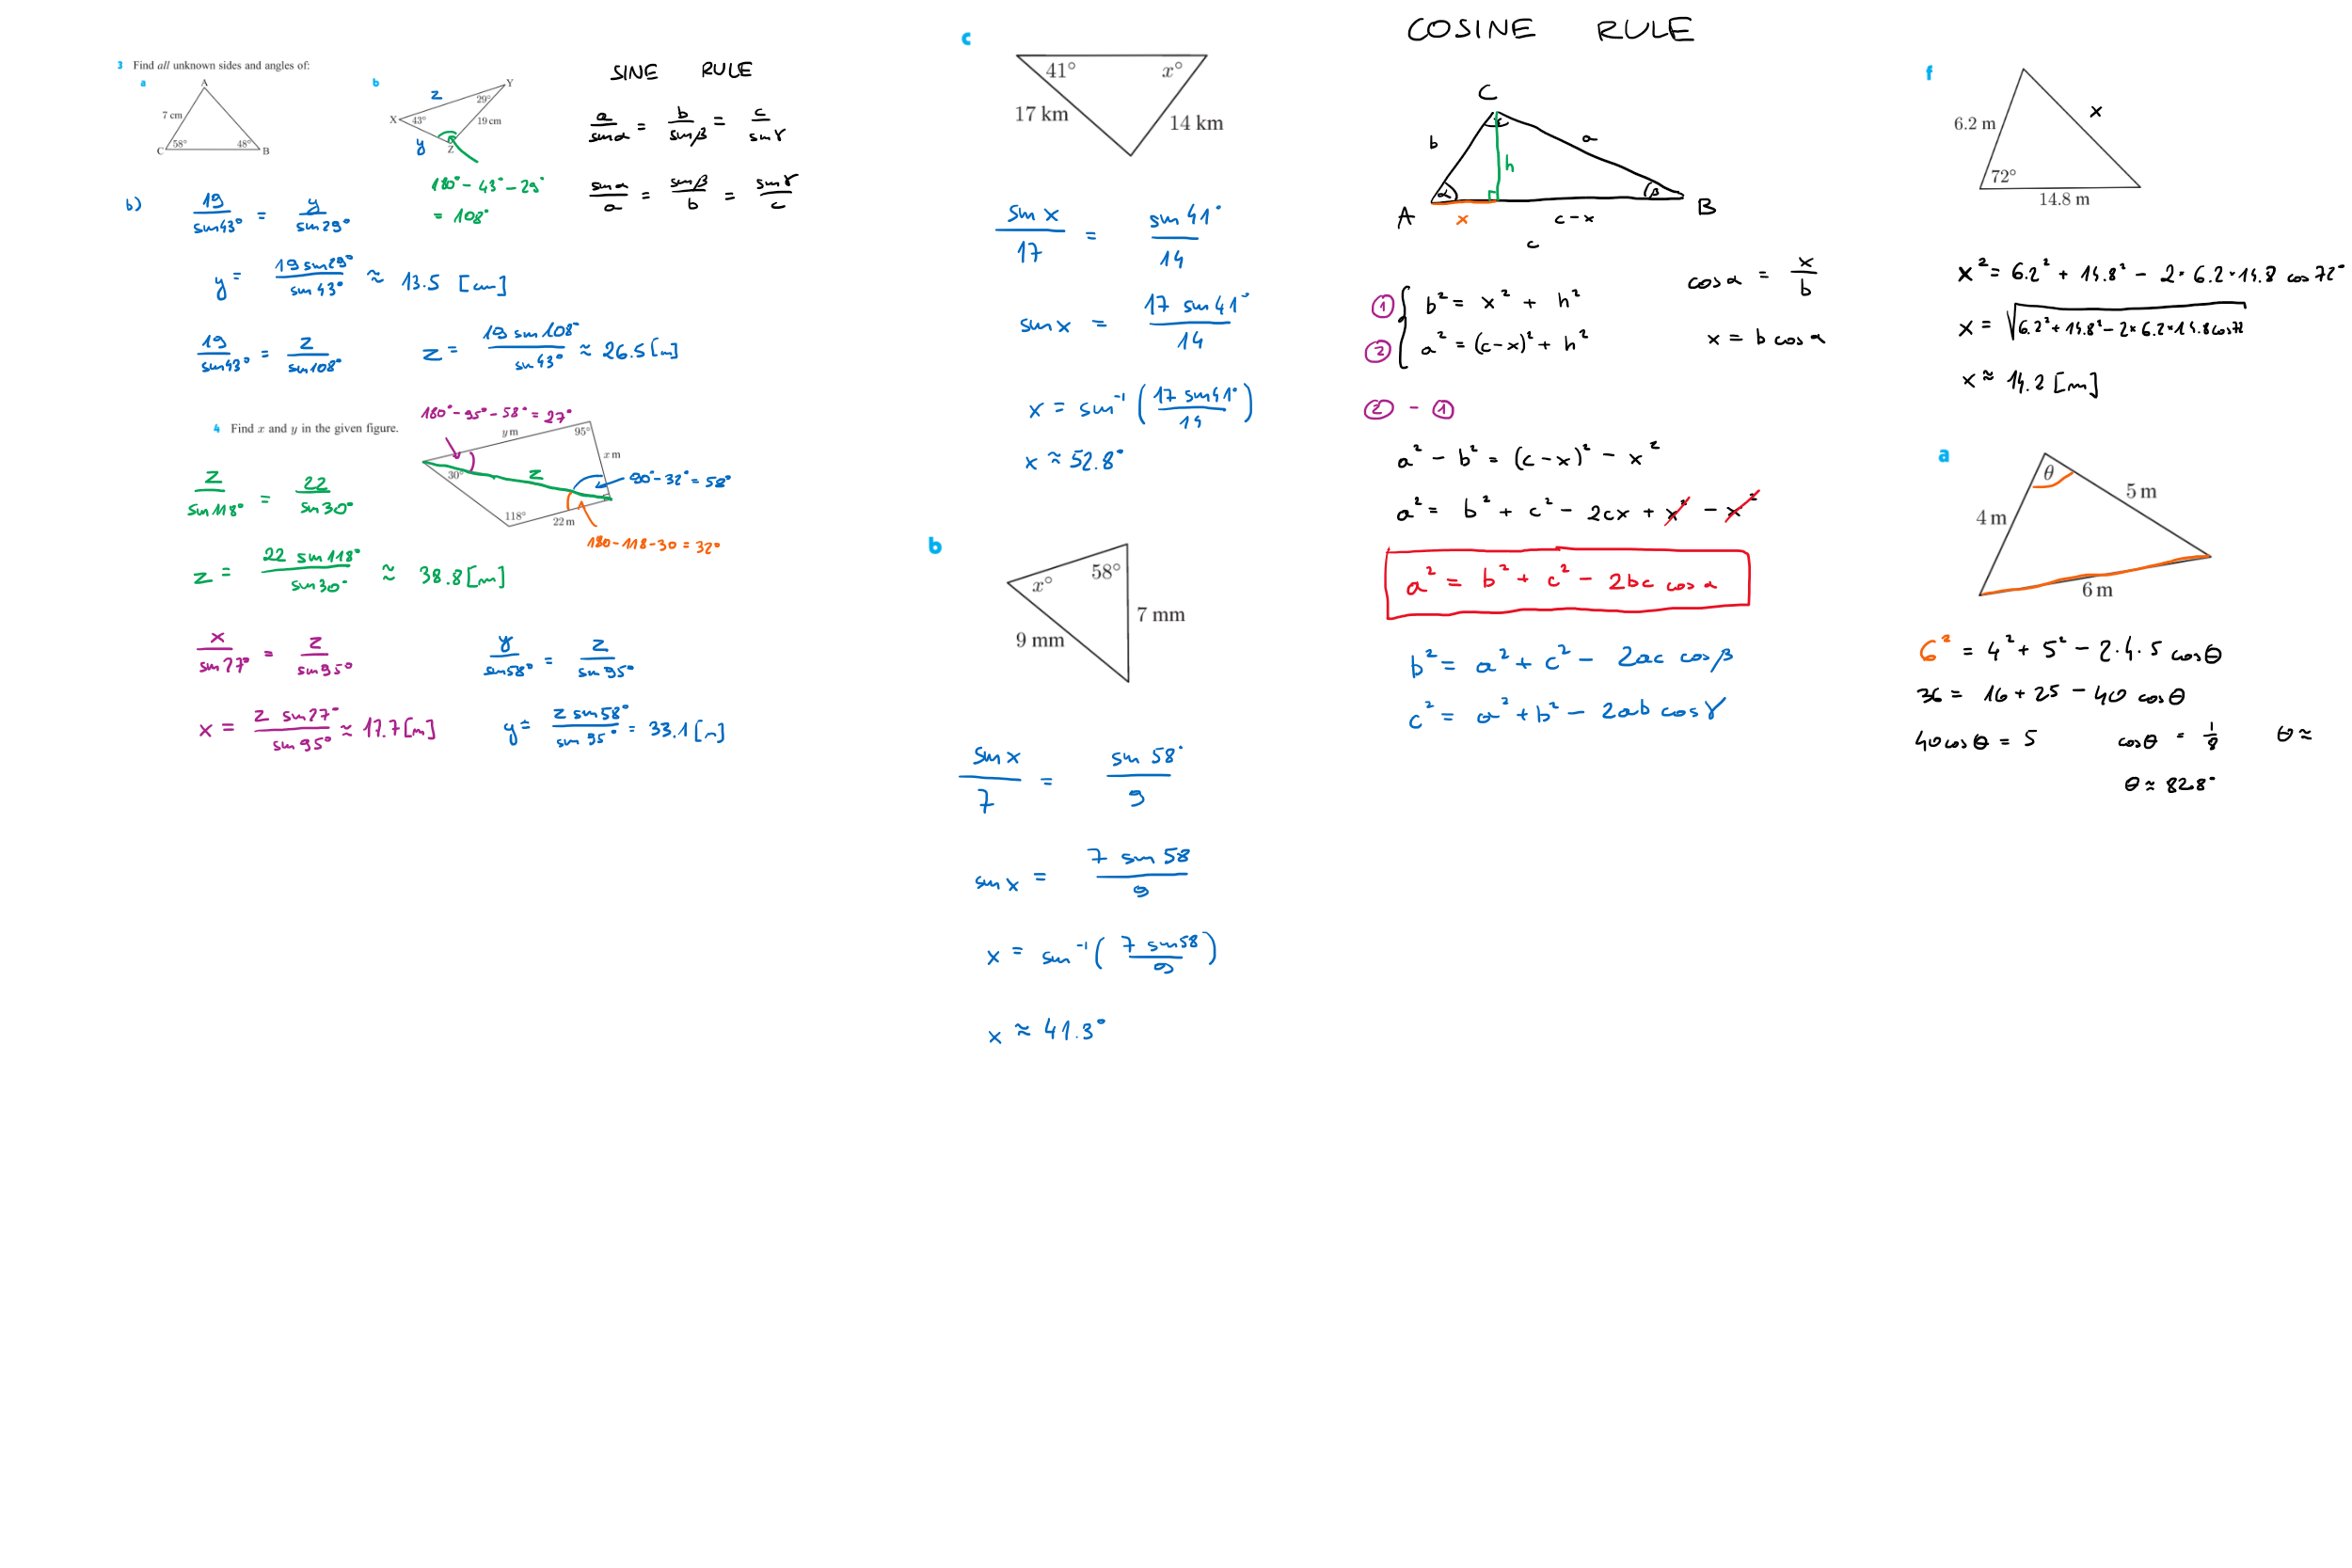 3 Find all unknown sides and angles of:
a
A
7 cm
58°
48°
C
B
b
z
Y
29°
X
43°
19 cm
y
Z
180° - 43° - 29°
= 108°
SINE RULE
a/sinα = b/sinβ = c/sinγ
sinα/a = sinβ/b = sinγ/c
b)
19/sin43° = y/sin29°
y = 19 sin29°/sin43° ≈ 13.5 [cm]
19/sin43° = z/sin108°
z = 19 sin108°/sin43° ≈ 26.5 [m]
180° - 95° - 58° = 27°
4 Find x and y in the given figure.
y m
95°
x m
30°
z
90° - 32° = 58°
118°
22 m
180 - 118 - 30 = 32°
z/sin118° = 22/sin30°
z = 22 sin118°/sin30° ≈ 38.8 [m]
x/sin27° = z/sin95°
x = z sin27°/sin95° ≈ 17.7 [m]
y/sin58° = z/sin95°
y = z sin58°/sin95° = 33.1 [m]
c
41°
x°
17 km
14 km
sin x/17 = sin 41°/14
sin x = 17 sin 41°/14
x = sin⁻¹ (17 sin41°/14)
x ≈ 52.8°
b
x°
58°
7 mm
9 mm
sin x/7 = sin 58°/9
sin x = 7 sin 58/9
x = sin⁻¹ (7 sin58/9)
x ≈ 41.3°
COSINE RULE
C
b
a
h
α
β
A
x
c-x
B
c
① b² = x² + h²
② a² = (c-x)² + h²
cosα = x/b
x = b cosα
② - ①
a² - b² = (c-x)² - x²
a² = b² + c² - 2cx + x² - x²
a² = b² + c² - 2bc cosα
b² = a² + c² - 2ac cosβ
c² = a² + b² - 2ab cosγ
f
x
6.2 m
72°
14.8 m
x² = 6.2² + 14.8² - 2 · 6.2 · 14.8 cos 72°
x = √6.2² + 14.8² - 2 × 6.2 × 14.8 cos72
x ≈ 14.2 [m]
a
θ
5 m
4 m
6 m
6² = 4² + 5² - 2·4·5 cosθ
36 = 16 + 25 - 40 cosθ
40 cosθ = 5
cosθ = 1/8
θ ≈
θ ≈ 82.8°